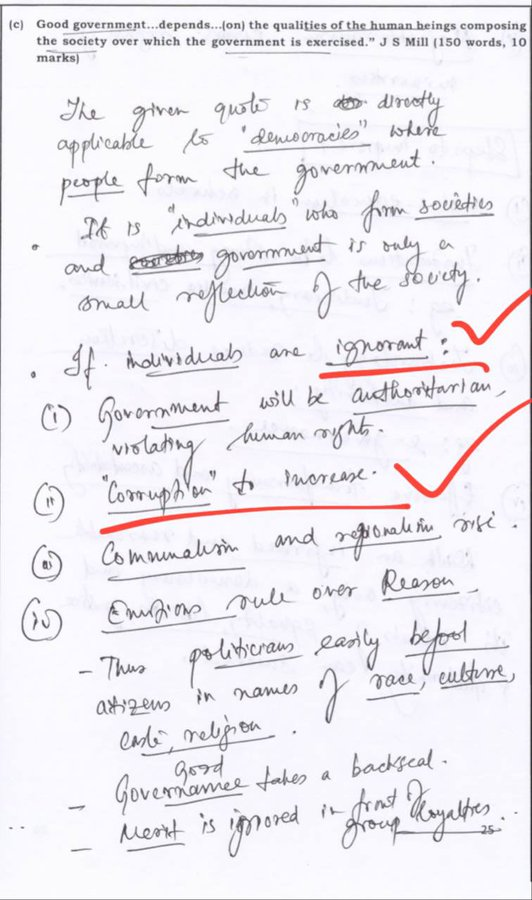 (c) Good government...depends...(on) the qualities of the human beings composing
the society over which the government is exercised." J S Mill (150 words, 10
marks)
The given quote is directly
applicable to "democracies" where
people form the government.
. It is "individuals" who form societies
and government is only a
small reflection of the society.
. If individuals are ignorant :
(i) Government will be authoritarian,
violating human rights.
(ii) "Corruption" to increase.
(iii) Communalism and regionalism rise.
(iv) Emotions rule over Reason
- Thus politicians easily befool
citizens in names of race, culture,
caste, religion.
- Good Governance takes a backseat.
- Merit is ignored in front of
group loyalties.
25